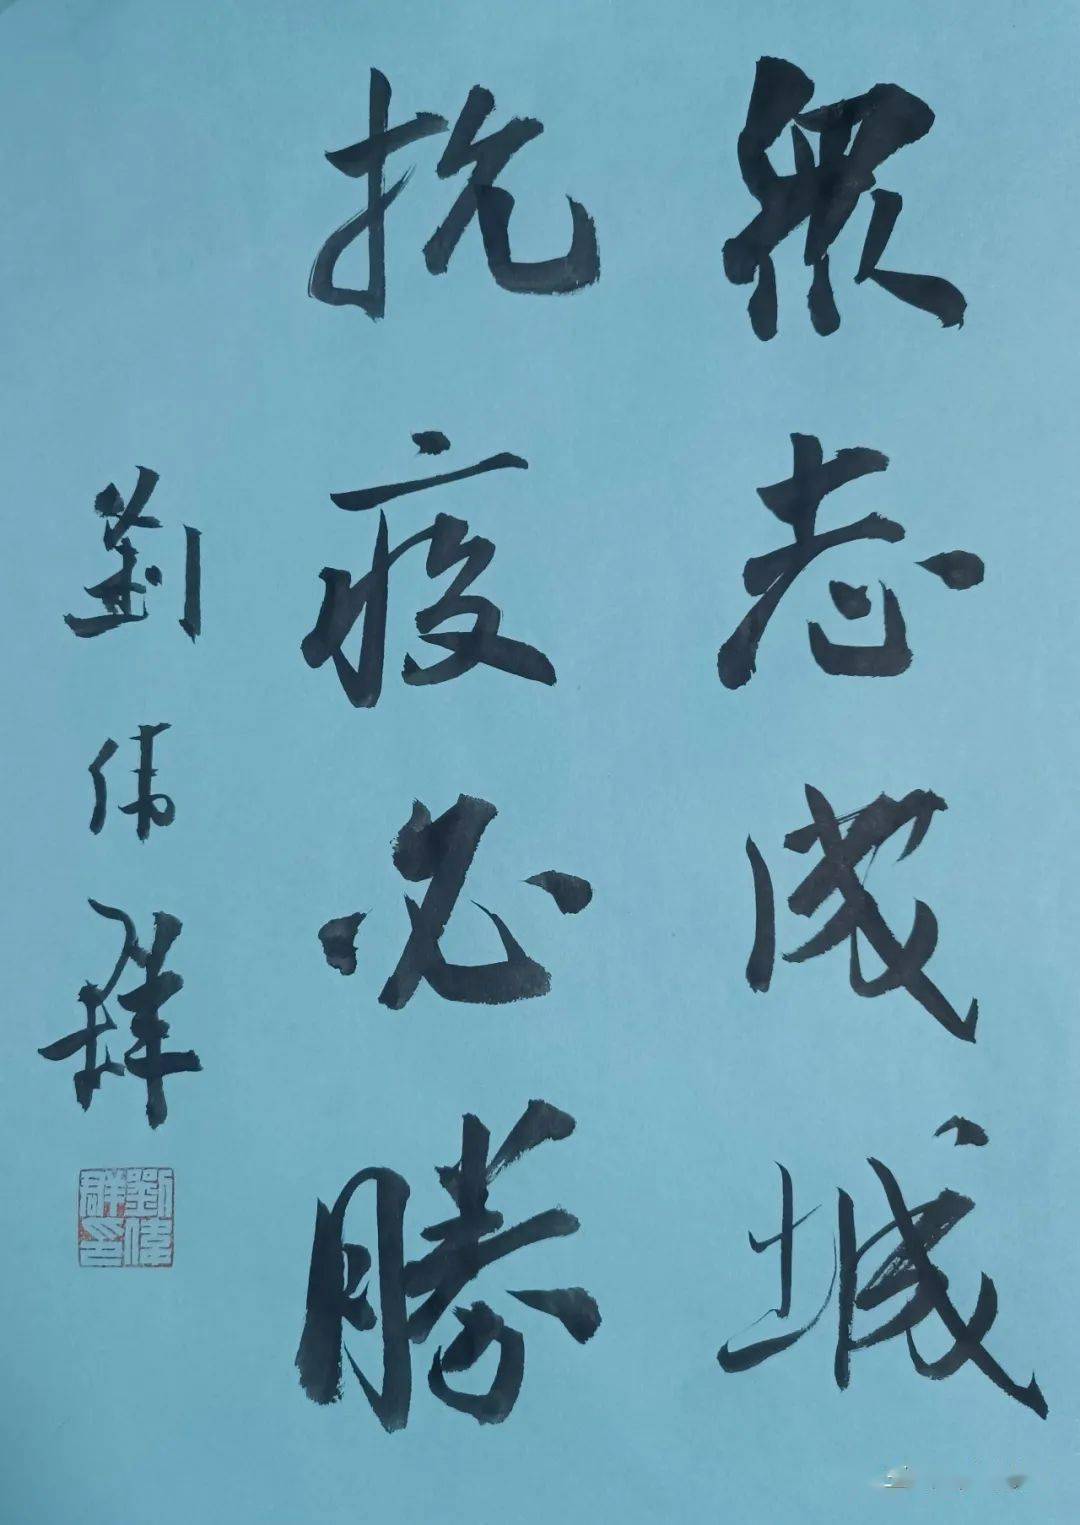 眾志成城
抗疫必勝
劉伟群
劉偉群印